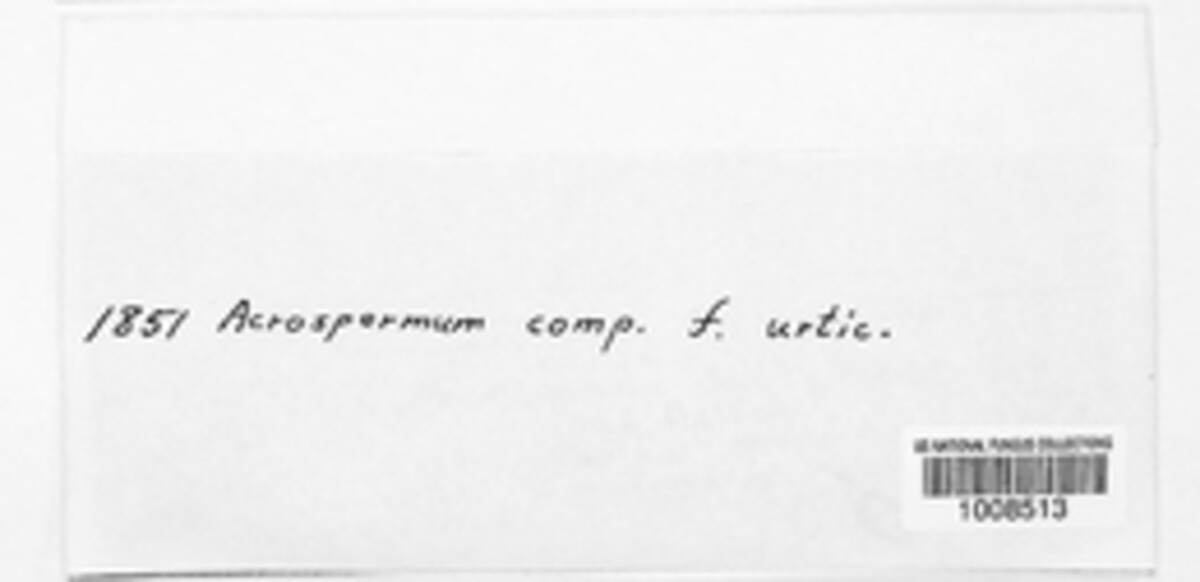 1851 Acrospermum comp. f. urtic.
US NATIONAL FUNGUS COLLECTIONS
1008513